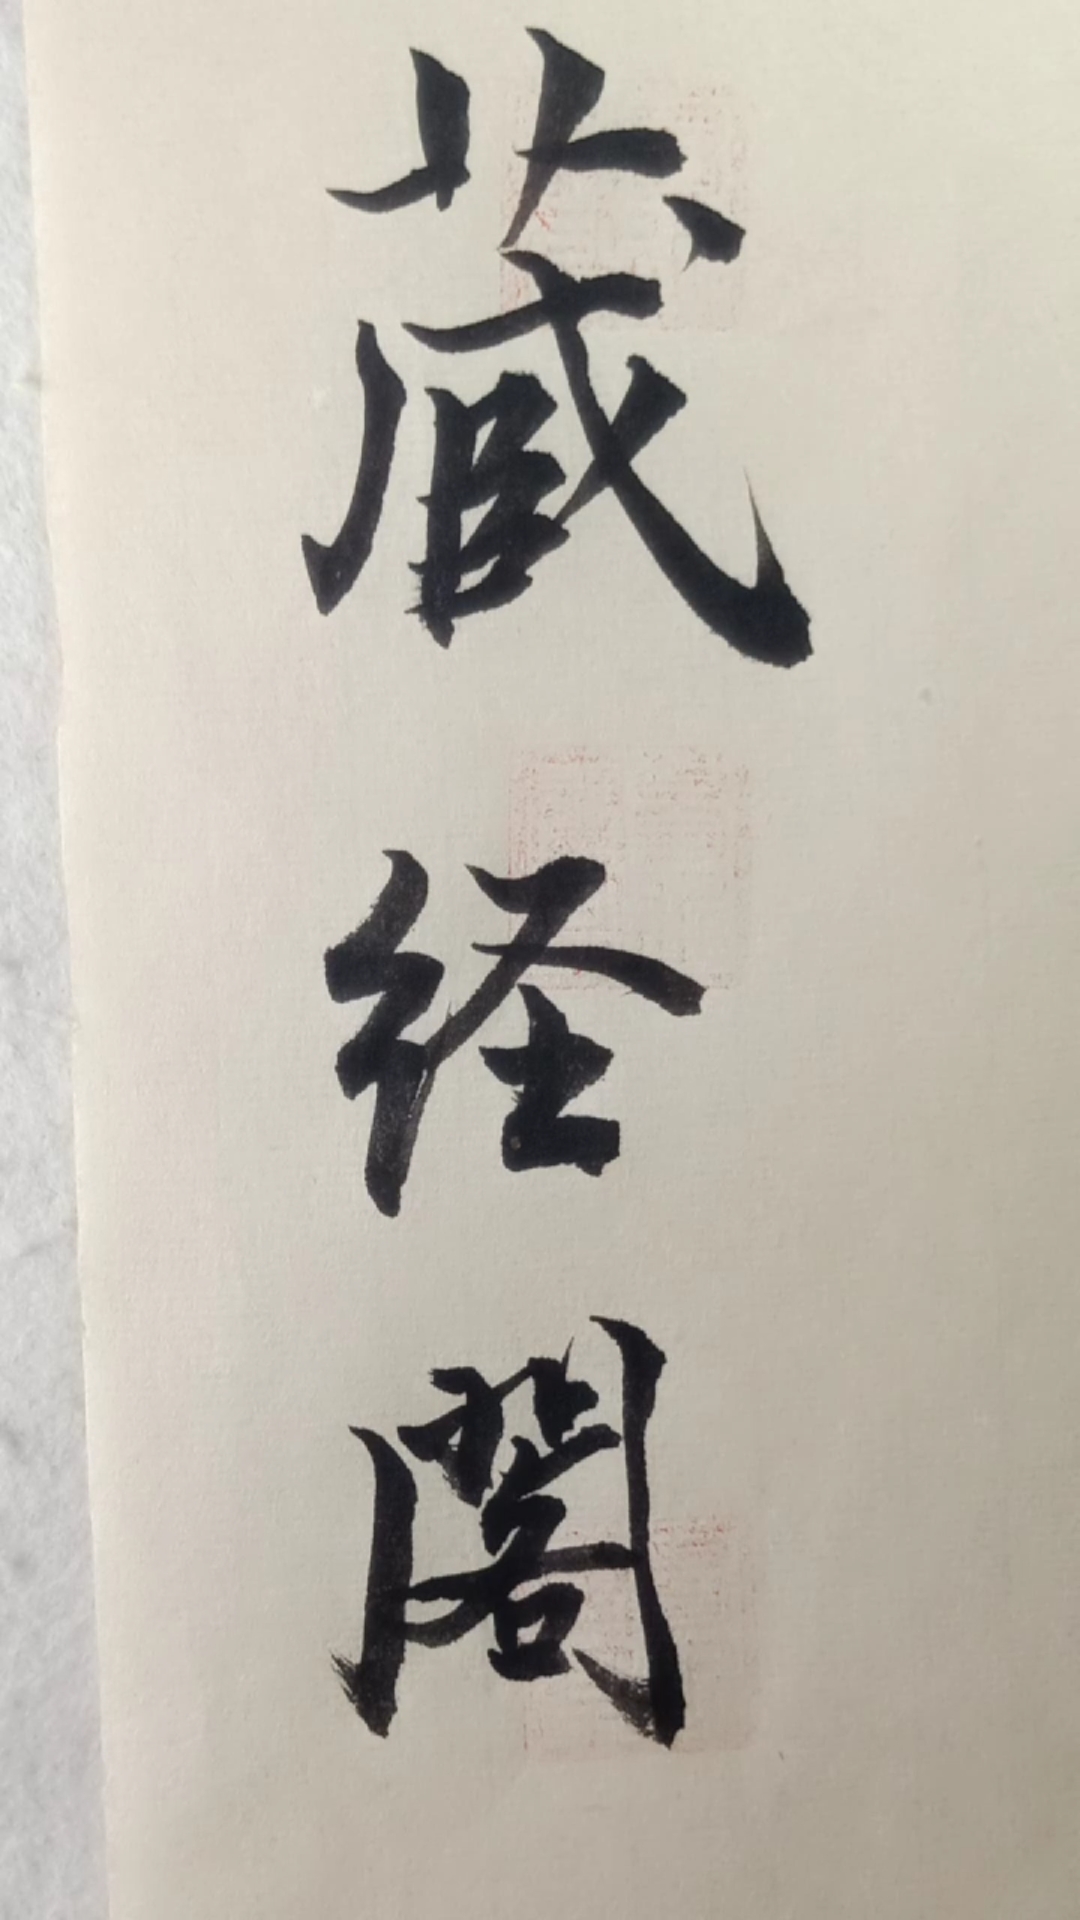 藏经閣